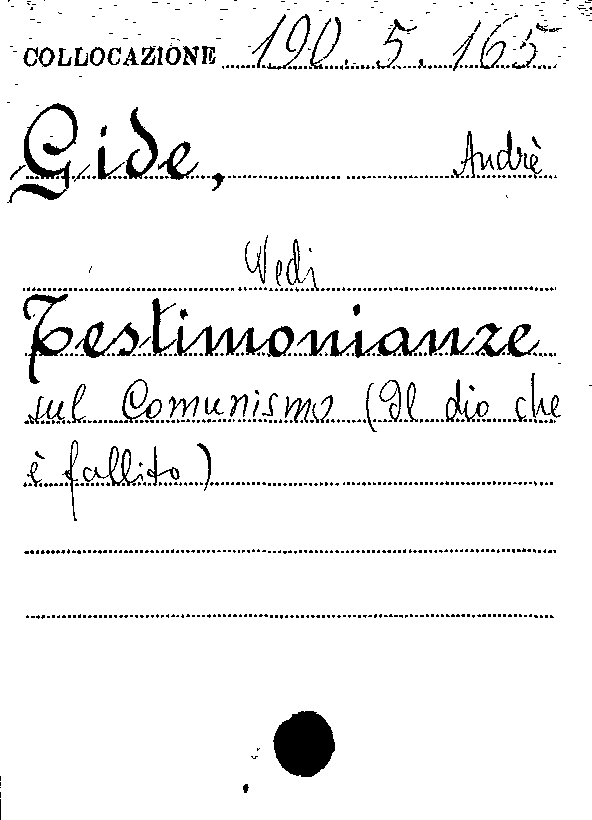 COLLOCAZIONE 190.5.165
Gide, Andrè
Vedi
Testimonianze
sul Comunismo (Il dio che
è fallito)